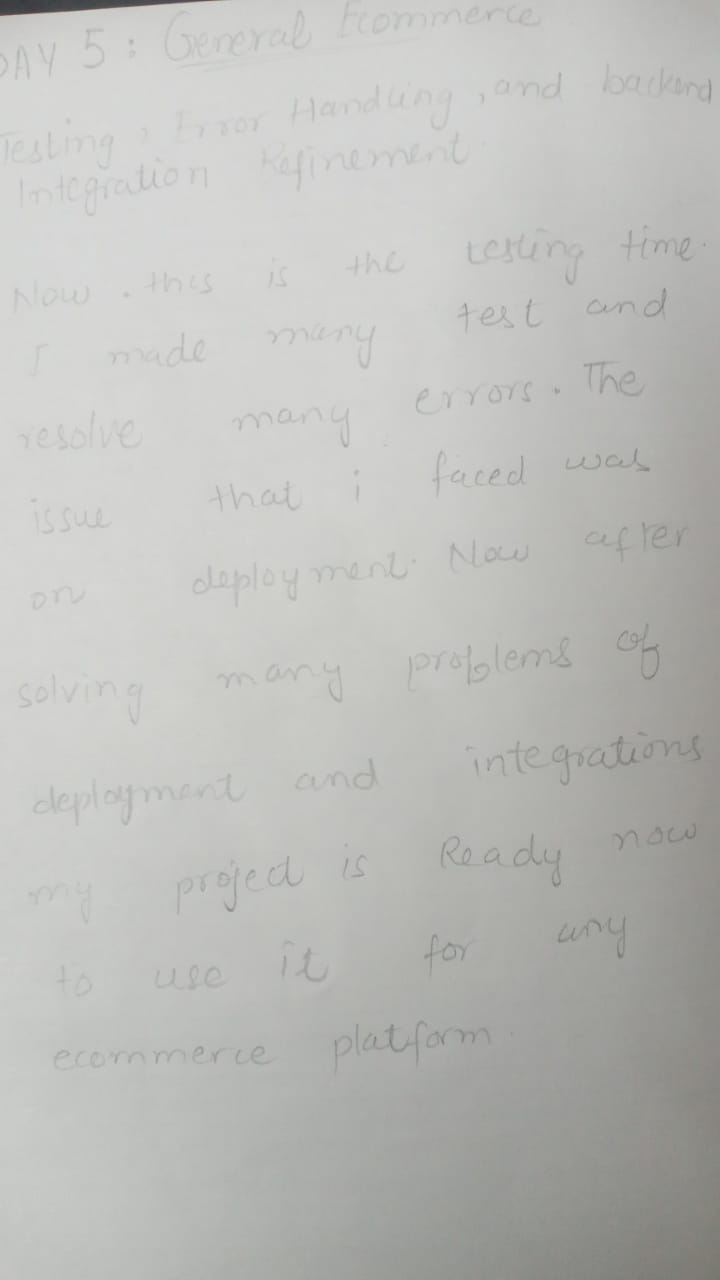 DAY 5 : General Ecommerce
Testing, Error Handling, and backend
Integration Refinement.
Now . this is the testing time.
I made many test and
resolve many errors. The
issue that i faced was
on deployment. Now after
solving many problems of
deployment and integrations
my project is Ready now
to use it for any
ecommerce platform.